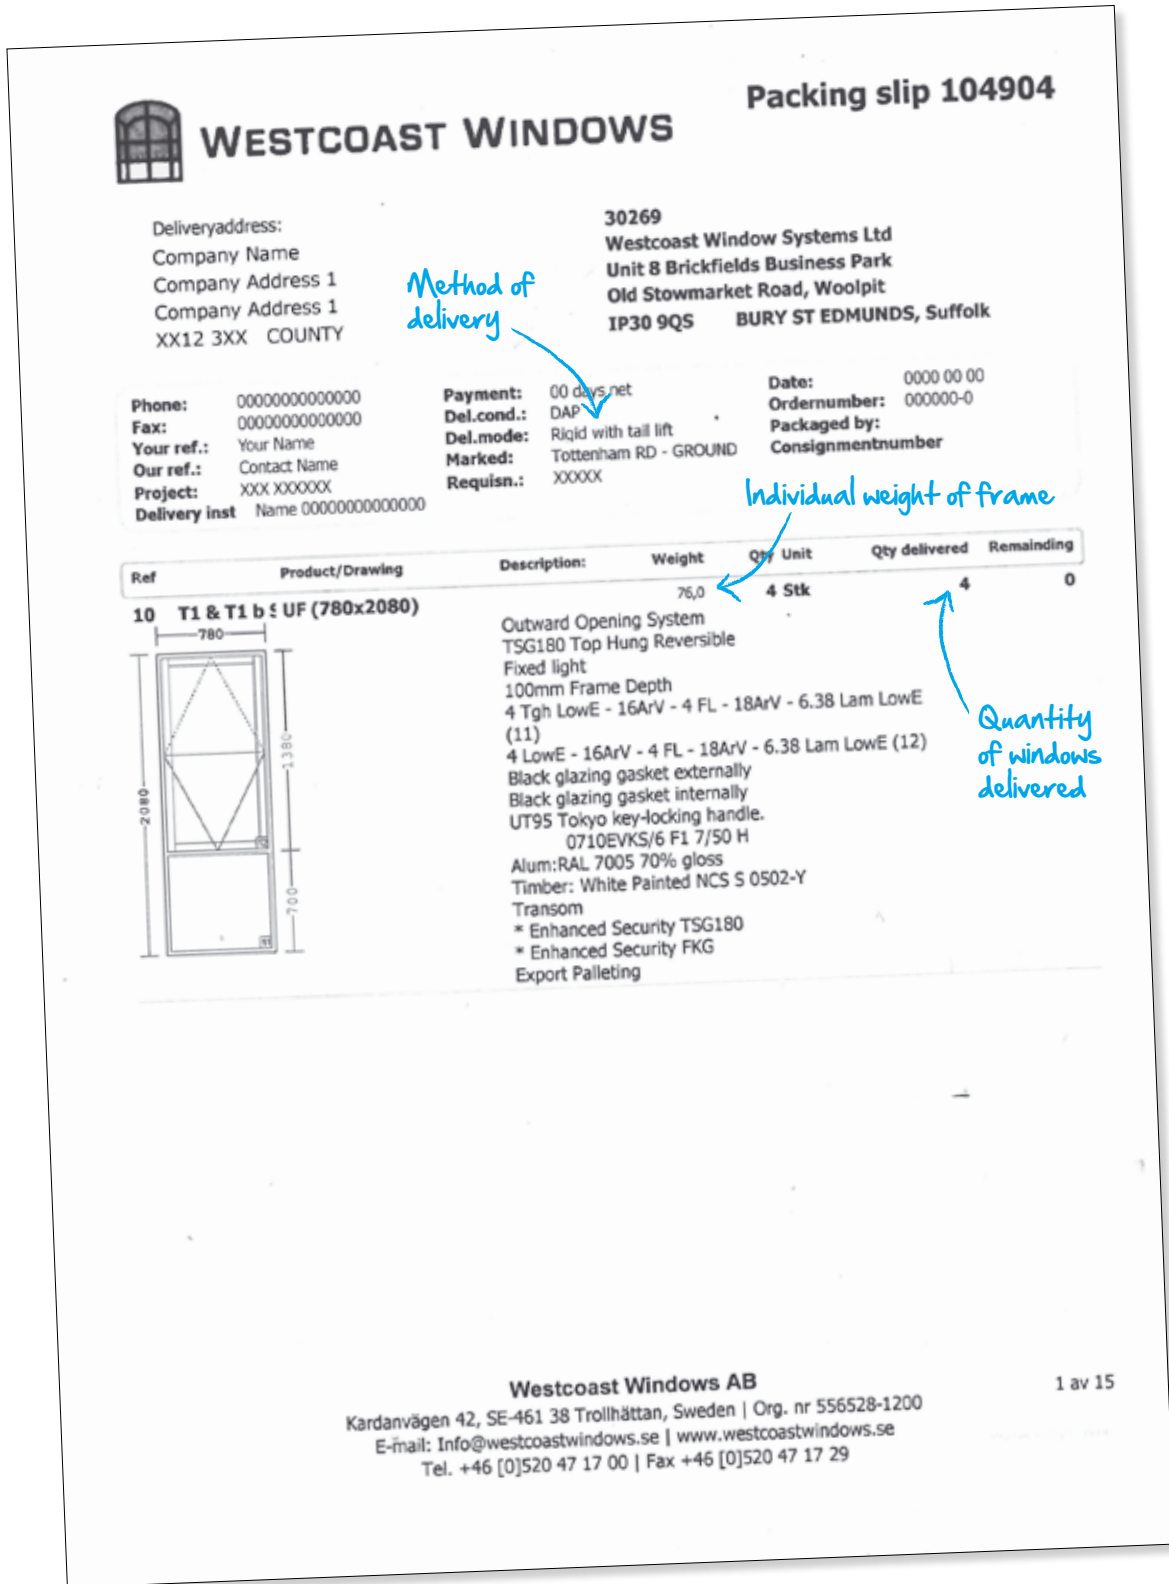 Packing slip 104904
WESTCOAST WINDOWS
Deliveryaddress:
Company Name
Company Address 1
Company Address 1
XX12 3XX COUNTY
30269
Westcoast Window Systems Ltd
Unit 8 Brickfields Business Park
Old Stowmarket Road, Woolpit
IP30 9QS BURY ST EDMUNDS, Suffolk
Method of
delivery
Phone: 00000000000000
Fax: 00000000000000
Your ref.: Your Name
Our ref.: Contact Name
Project: XXX XXXXXX
Delivery inst Name 00000000000000
Payment: 00 days net
Del.cond.: DAP
Del.mode: Rigid with tail lift
Marked: Tottenham RD - GROUND
Requisn.: XXXXX
Date: 0000 00 00
Ordernumber: 000000-0
Packaged by:
Consignmentnumber
Individual weight of frame
Ref Product/Drawing Description: Weight Qty Unit Qty delivered Remainding
10 T1 & T1 b S UF (780x2080) 76,0 4 Stk 4 0
780
2080
1380
700
Outward Opening System
TSG180 Top Hung Reversible
Fixed light
100mm Frame Depth
4 Tgh LowE - 16ArV - 4 FL - 18ArV - 6.38 Lam LowE
(11)
4 LowE - 16ArV - 4 FL - 18ArV - 6.38 Lam LowE (12)
Black glazing gasket externally
Black glazing gasket internally
UT95 Tokyo key-locking handle.
0710EVKS/6 F1 7/50 H
Alum:RAL 7005 70% gloss
Timber: White Painted NCS S 0502-Y
Transom
* Enhanced Security TSG180
* Enhanced Security FKG
Export Palleting
Quantity
of windows
delivered
Westcoast Windows AB
Kardanvägen 42, SE-461 38 Trollhättan, Sweden | Org. nr 556528-1200
E-mail: Info@westcoastwindows.se | www.westcoastwindows.se
Tel. +46 [0]520 47 17 00 | Fax +46 [0]520 47 17 29
1 av 15